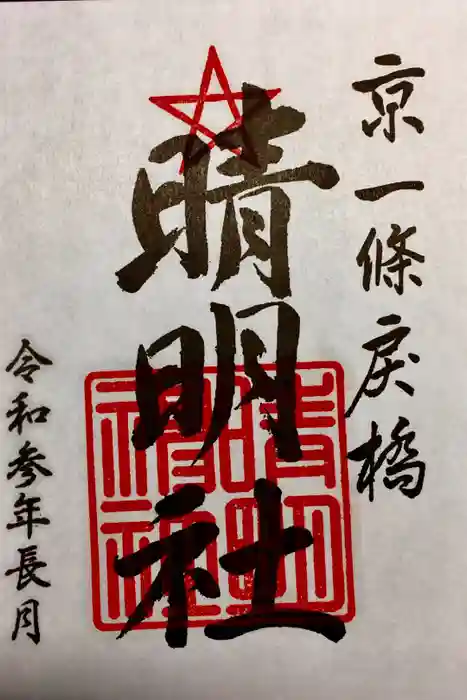 京一條戻橋
晴明社
令和参年長月